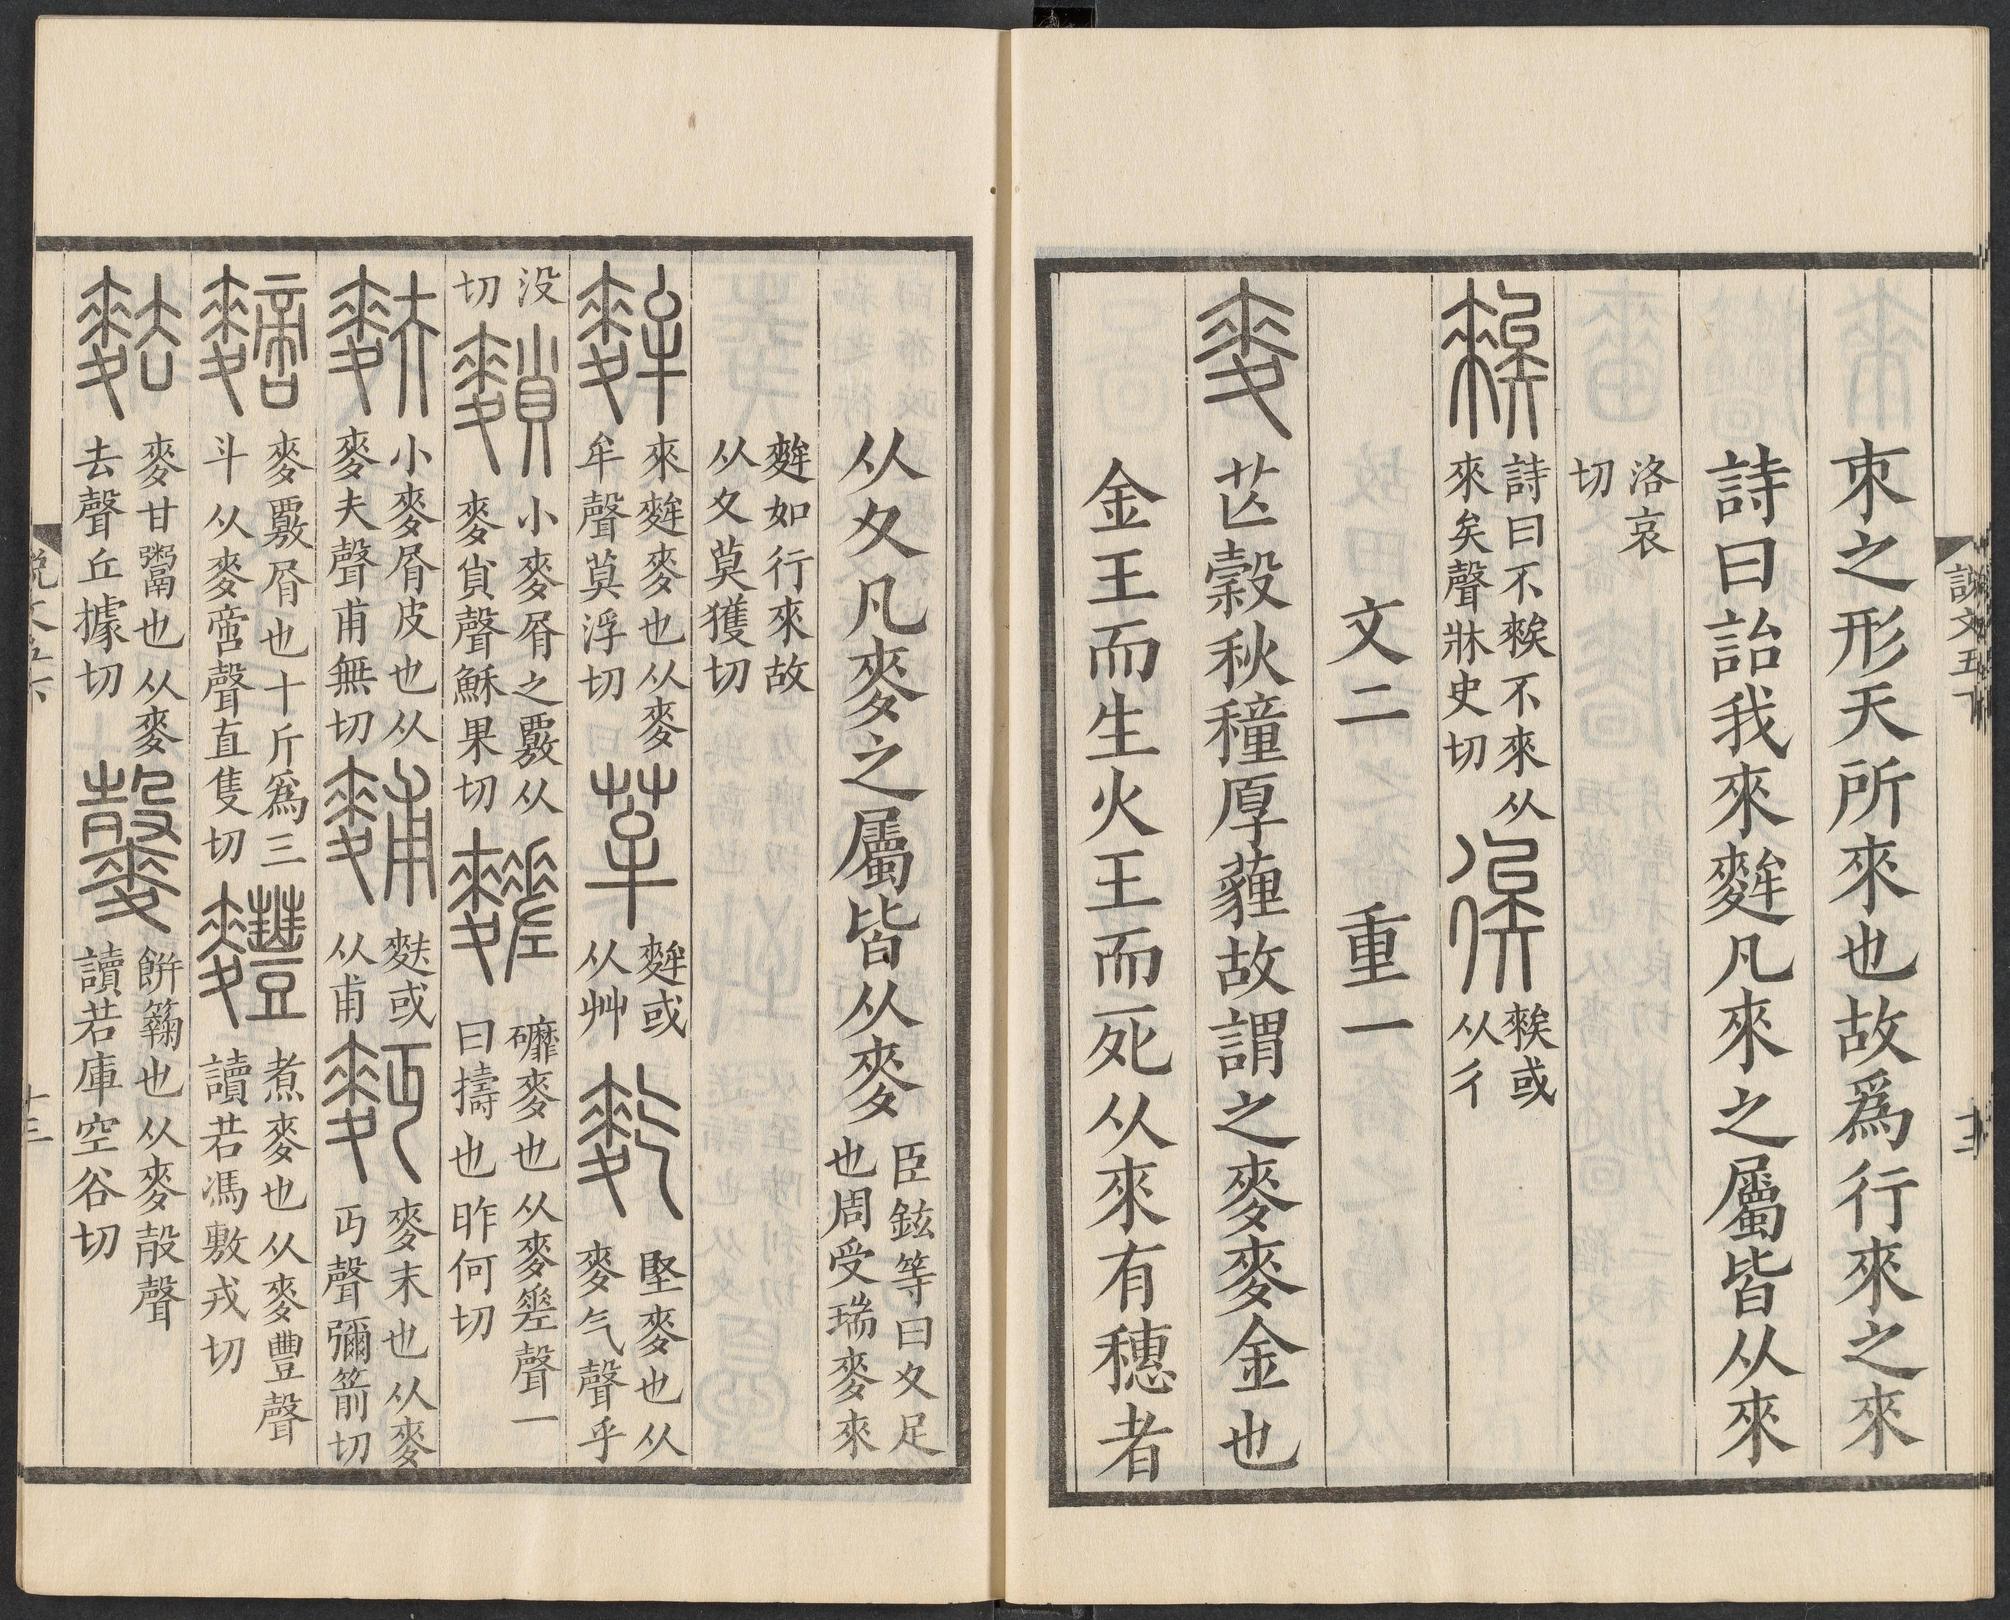 説文五下 十三
朿之形天所來也故爲行來之來
詩曰詒我來麰凡來之屬皆从來
洛哀
切
𥏳
詩曰不𥏳不來从
來矣聲牀史切
𥏳或
从彳
文二 重一
麥 芒穀秋穜厚薶故謂之麥麥金也
金王而生火王而死从來有穗者
从夊凡麥之屬皆从麥
臣鉉等曰夊足
也周受瑞麥來
麰如行來故
从夊莫獲切
麰
來麰麥也从麥
牟聲莫浮切
麰或
从艸
麧
堅麥也从
麥气聲乎
没
切
䴹
小麥屑之覈从
麥𧴪聲穌果切
䴾
礳麥也从麥𢀩聲一
曰擣也昨何切
麩
小麥屑皮也从
麥夫聲甫無切
䴸
麩或
从甫
麪
麥末也从麥
丏聲彌箭切
䵂
麥覈屑也十斤爲三
斗从麥啻聲直隻切
麷
煮麥也从麥豐聲
讀若馮敷戎切
麮
麥甘鬻也从麥
去聲丘據切
餅籟也从麥㱿聲
讀若庫空谷切
説文五下 十三